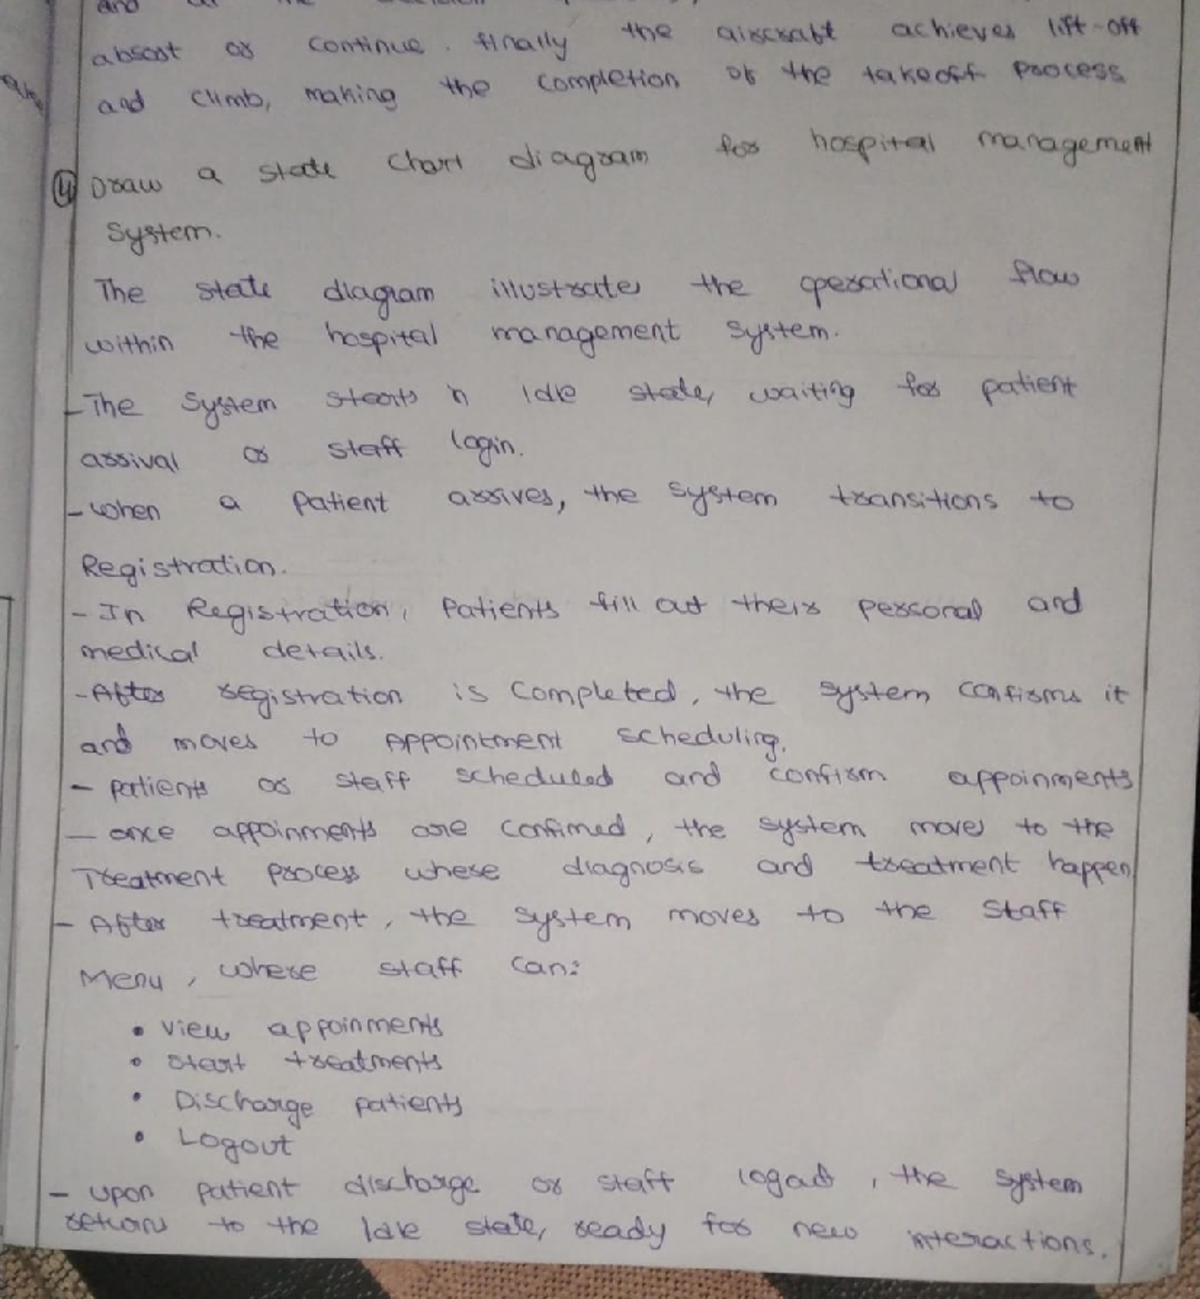 and
absort or continue. finally the aircraft achieves lift-off
and climb, making the completion of the takeoff process
④ Draw a state chart diagram for hospital management
System.
The state diagram illustrates the operational flow
within the hospital management system.
- The System starts in Idle state, waiting for patient
arrival or staff login.
- when a patient arrives, the system transitions to
Registration.
- In Registration, patients fill out their personal and
medical details.
- After registration is completed, the system confirms it
and moves to Appointment scheduling.
- patients or staff scheduled and confirm appoinments
- once appoinments are confimed, the system moves to the
Treatment process where diagnosis and treatment happen
- After treatment, the system moves to the Staff
Menu, where staff can:
• view appoinments
• start treatments
• Discharge patients
• Logout
- upon patient discharge or staff logout, the system
return to the Idle state, ready for new interactions.